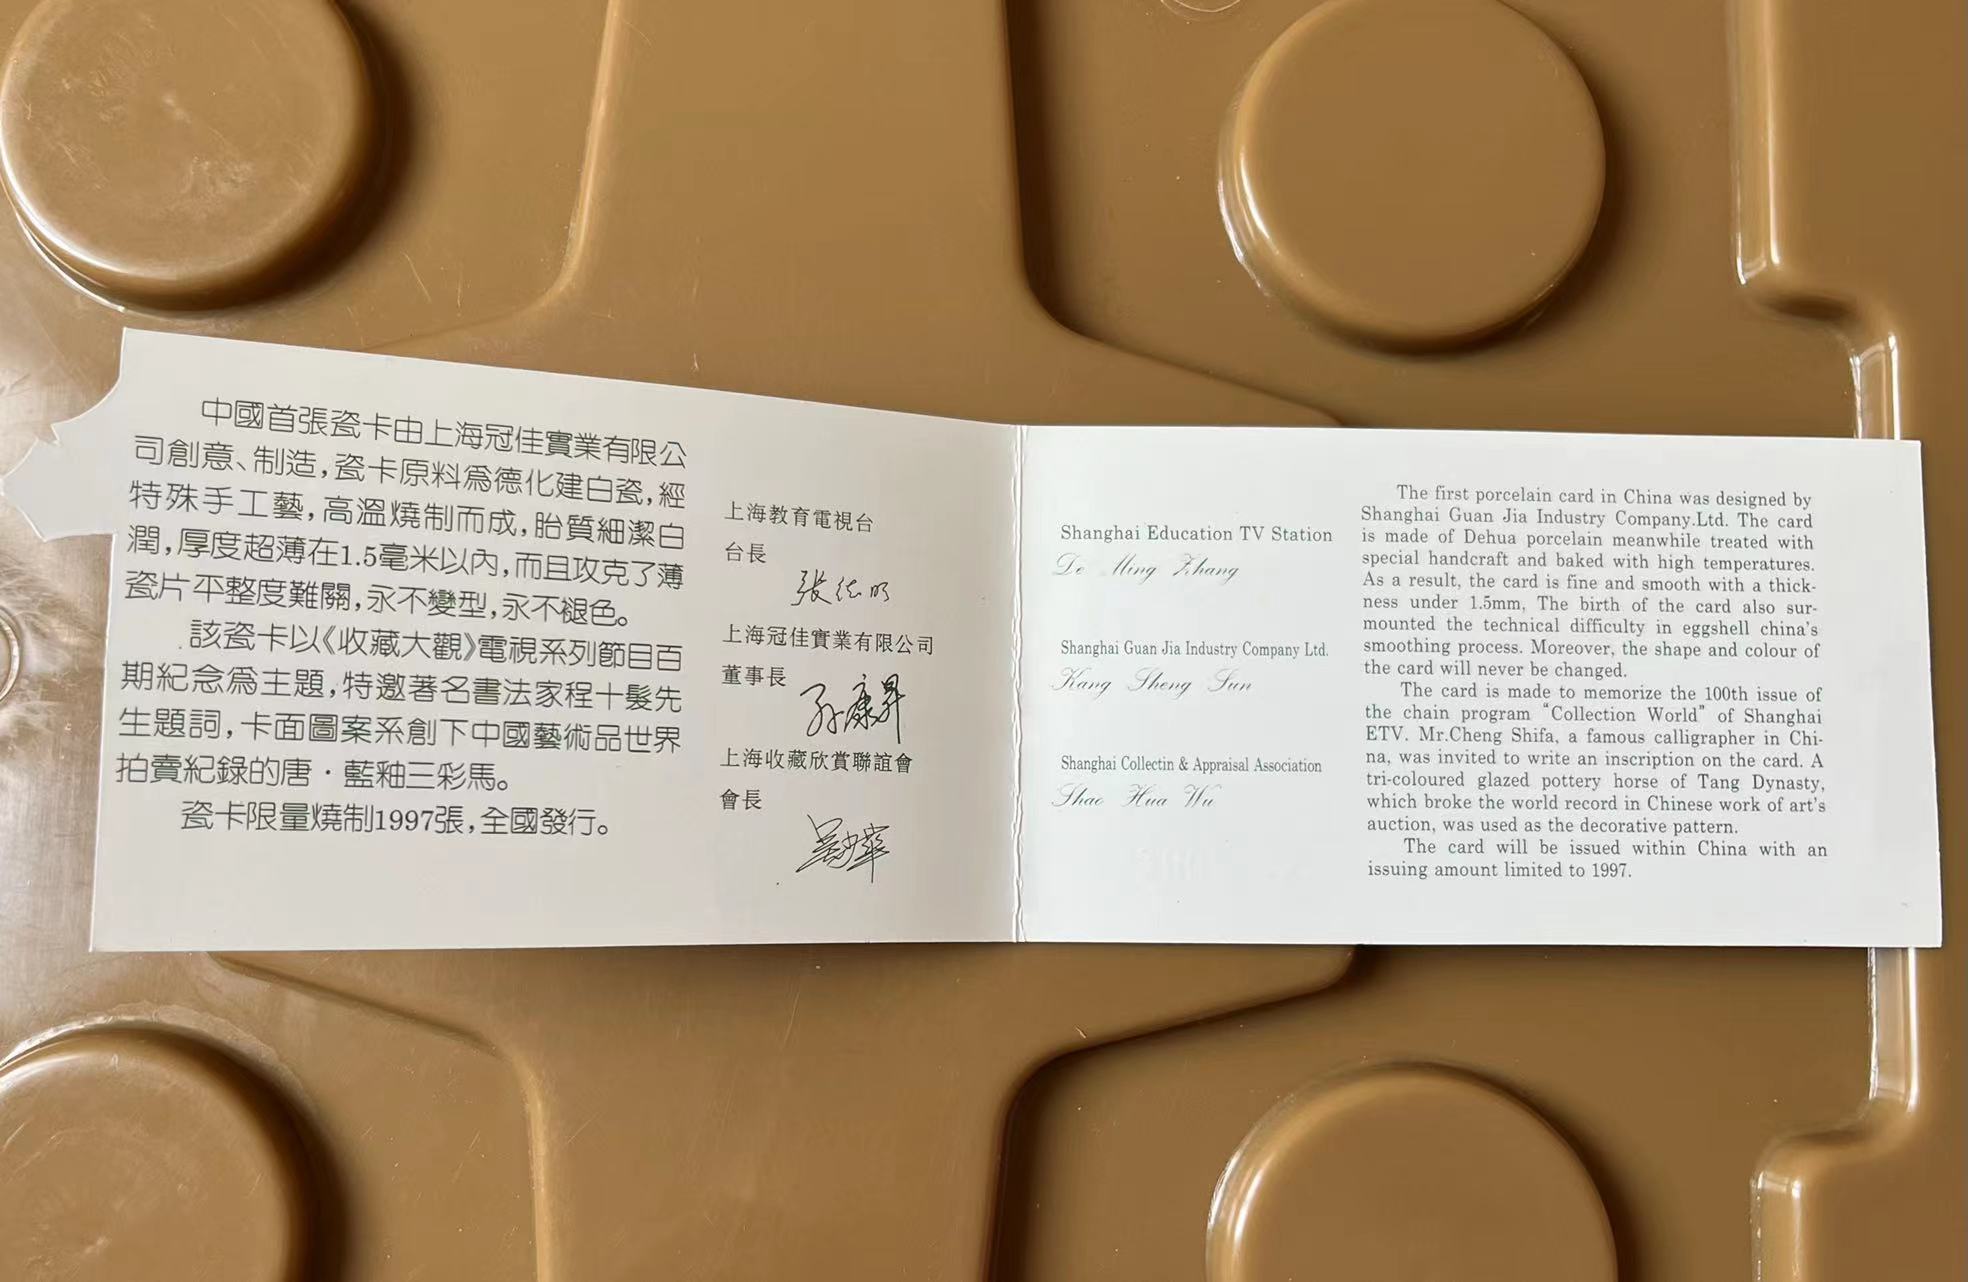 中國首張瓷卡由上海冠佳實業有限公
司創意、制造，瓷卡原料爲德化建白瓷，經
特殊手工藝，高溫燒制而成，胎質細潔白
潤，厚度超薄在1.5毫米以內，而且攻克了薄
瓷片平整度難關，永不變型，永不褪色。
該瓷卡以《收藏大觀》電視系列節目百
期紀念爲主題，特邀著名書法家程十髮先
生題詞，卡面圖案系創下中國藝術品世界
拍賣紀錄的唐·藍釉三彩馬。
瓷卡限量燒制1997張，全國發行。
上海教育電視台
台長
張德明
上海冠佳實業有限公司
董事長
孫康昇
上海收藏欣賞聯誼會
會長
吳少華
Shanghai Education TV Station
De Ming Zhang
Shanghai Guan Jia Industry Company Ltd.
Kang Sheng Sun
Shanghai Collectin & Appraisal Association
Shao Hua Wu
The first porcelain card in China was designed by
Shanghai Guan Jia Industry Company.Ltd. The card
is made of Dehua porcelain meanwhile treated with
special handcraft and baked with high temperatures.
As a result, the card is fine and smooth with a thick-
ness under 1.5mm, The birth of the card also sur-
mounted the technical difficulty in eggshell china's
smoothing process. Moreover, the shape and colour of
the card will never be changed.
The card is made to memorize the 100th issue of
the chain program “Collection World” of Shanghai
ETV. Mr.Cheng Shifa, a famous calligrapher in Chi-
na, was invited to write an inscription on the card. A
tri-coloured glazed pottery horse of Tang Dynasty,
which broke the world record in Chinese work of art's
auction, was used as the decorative pattern.
The card will be issued within China with an
issuing amount limited to 1997.